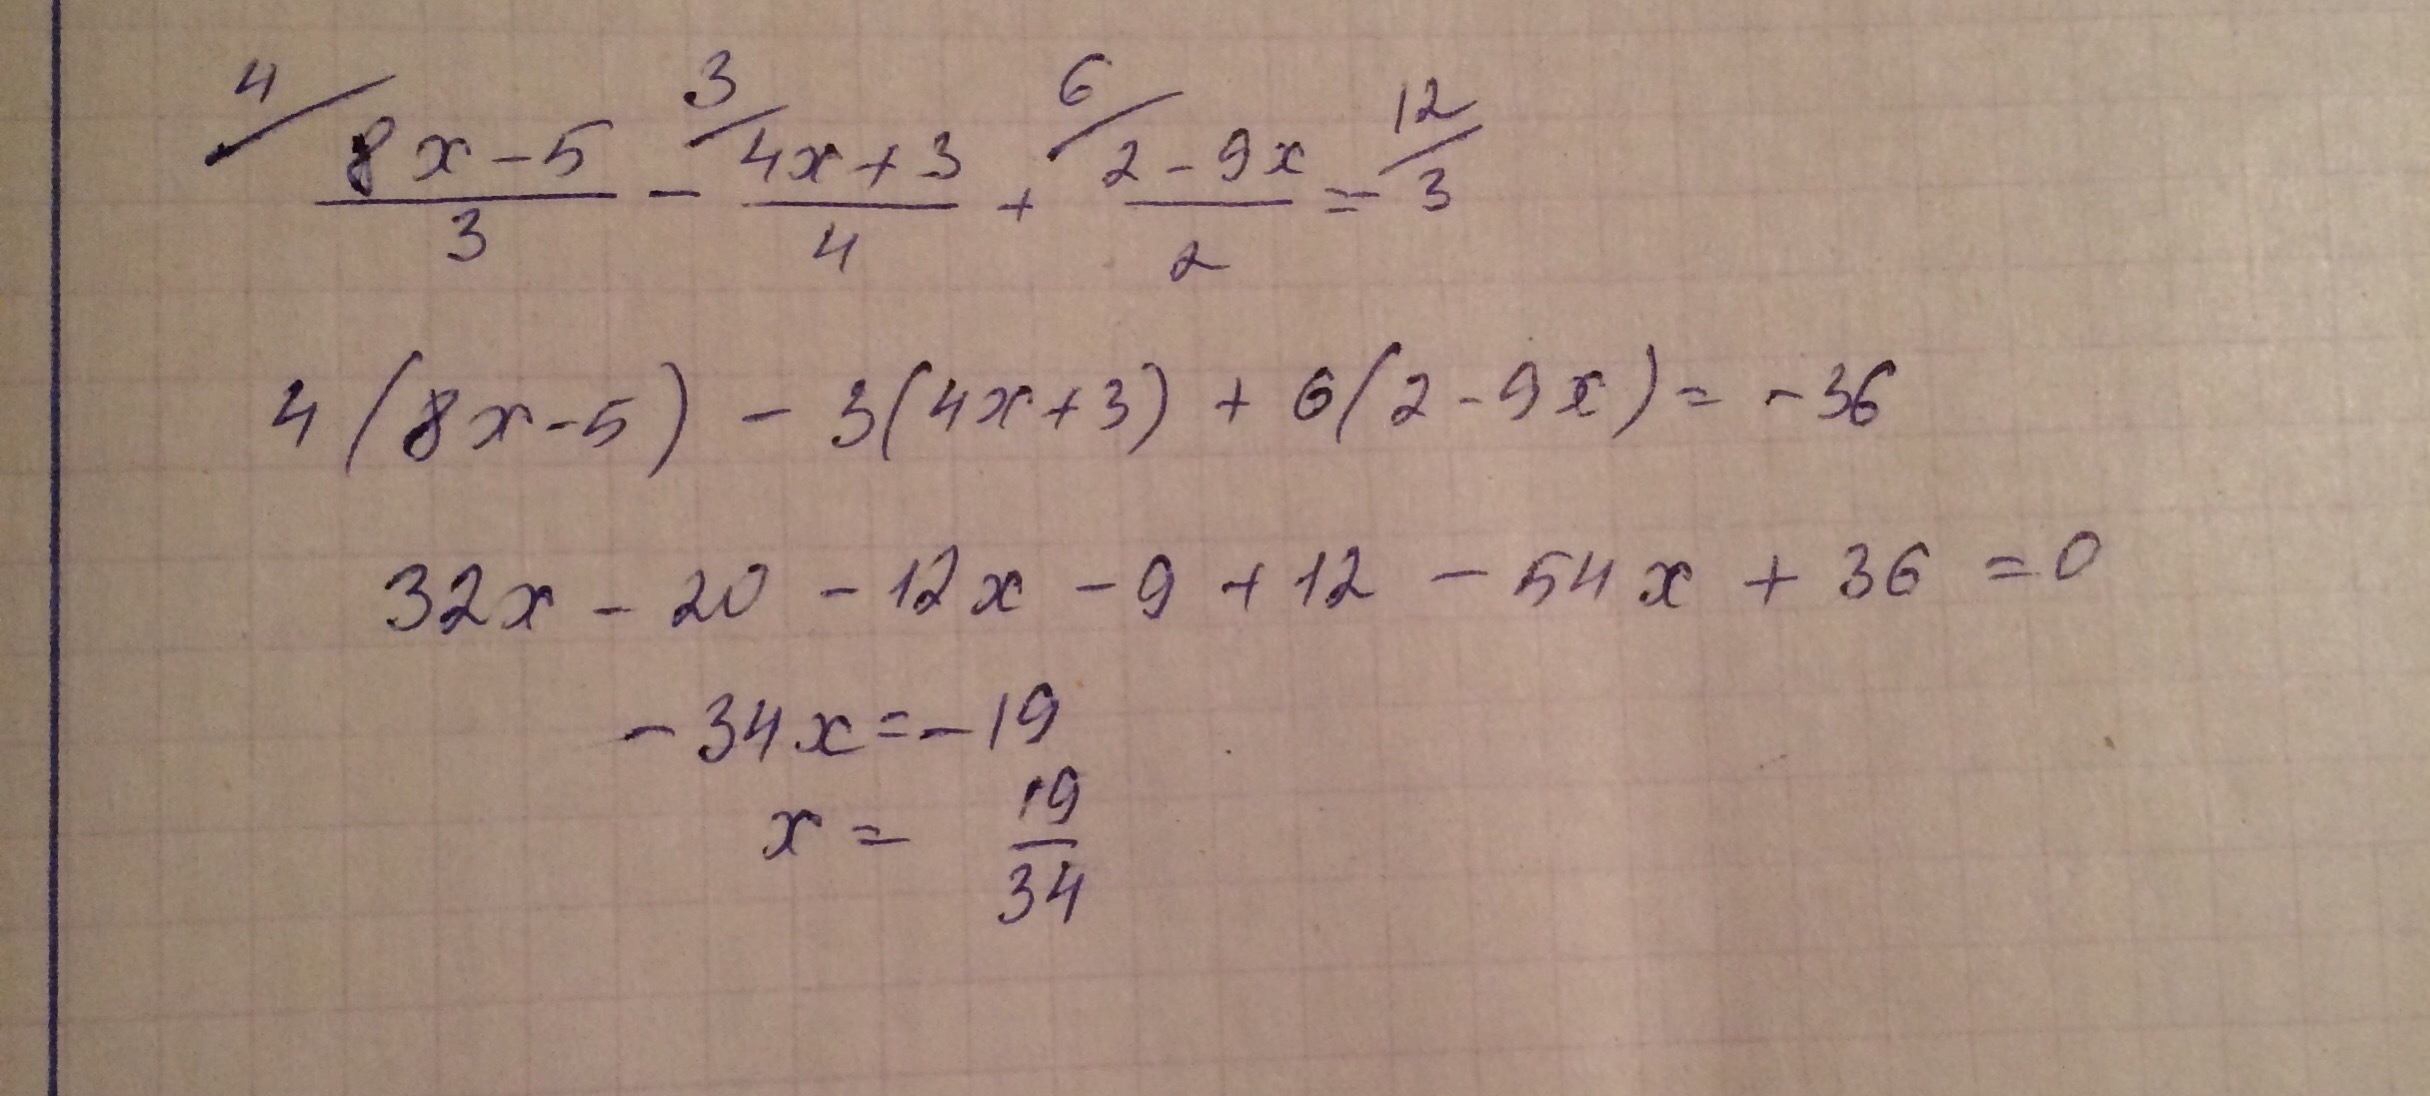 4/ (8x-5)/3 - 3/ (4x+3)/4 + 6/ (2-9x)/2 = 12/ -3
4(8x-5) - 3(4x+3) + 6(2-9x) = -36
32x - 20 - 12x - 9 + 12 - 54x + 36 = 0
-34x = -19
x = 19/34